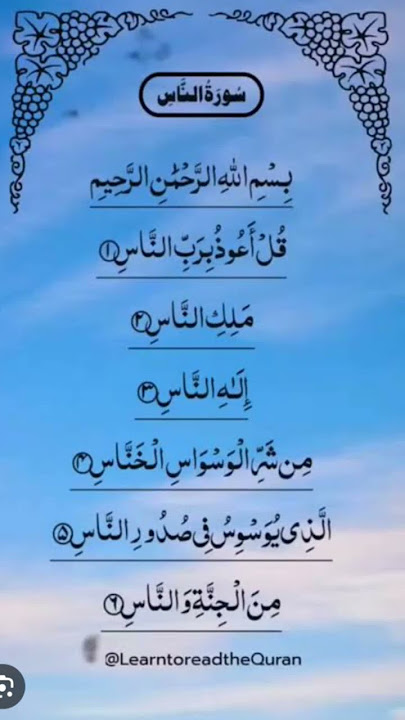 سُورَةُ النَّاسِ
بِسْمِ اللهِ الرَّحْمٰنِ الرَّحِيْمِ
قُلْ أَعُوذُ بِرَبِّ النَّاسِ ۝١
مَلِكِ النَّاسِ ۝٢
إِلَـٰهِ النَّاسِ ۝٣
مِن شَرِّ الْوَسْوَاسِ الْخَنَّاسِ ۝٤
الَّذِى يُوَسْوِسُ فِى صُدُورِ النَّاسِ ۝٥
مِنَ الْجِنَّةِ وَ النَّاسِ ۝٦
@LearntoreadtheQuran